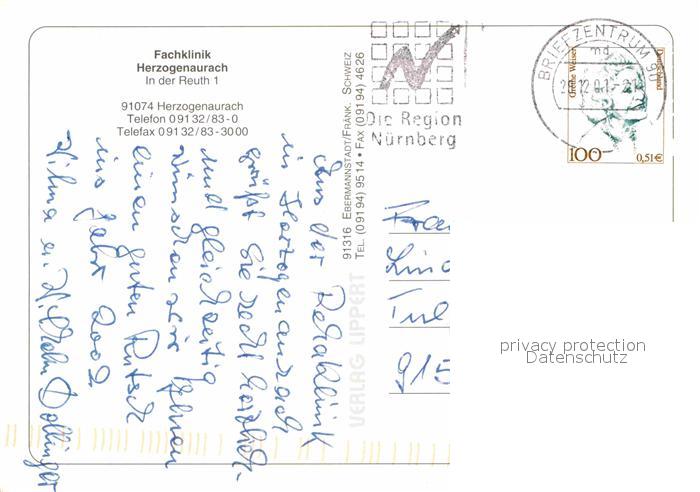 Fachklinik
Herzogenaurach
In der Reuth 1
91074 Herzogenaurach
Telefon 0 91 32 / 83 - 0
Telefax 0 91 32 / 83 - 30 00
Aus der Rehaklinik
in Herzogenaurach
grüßt Sie recht herzlich
und gleichzeitig
wünschen wir Ihnen
einen guten Rutsch
ins Jahr 2002
Wilma u. Wilhelm Dollinger
VERLAG LIPPERT
91316 EBERMANNSTADT/FRÄNK. SCHWEIZ
TEL. (091 94) 95 14 • FAX (091 94) 46 26
Die Region
Nürnberg
BRIEFZENTRUM 90
md
Grethe Weiser
Deutschland
100
0,51€
Frau
915
privacy protection
Datenschutz